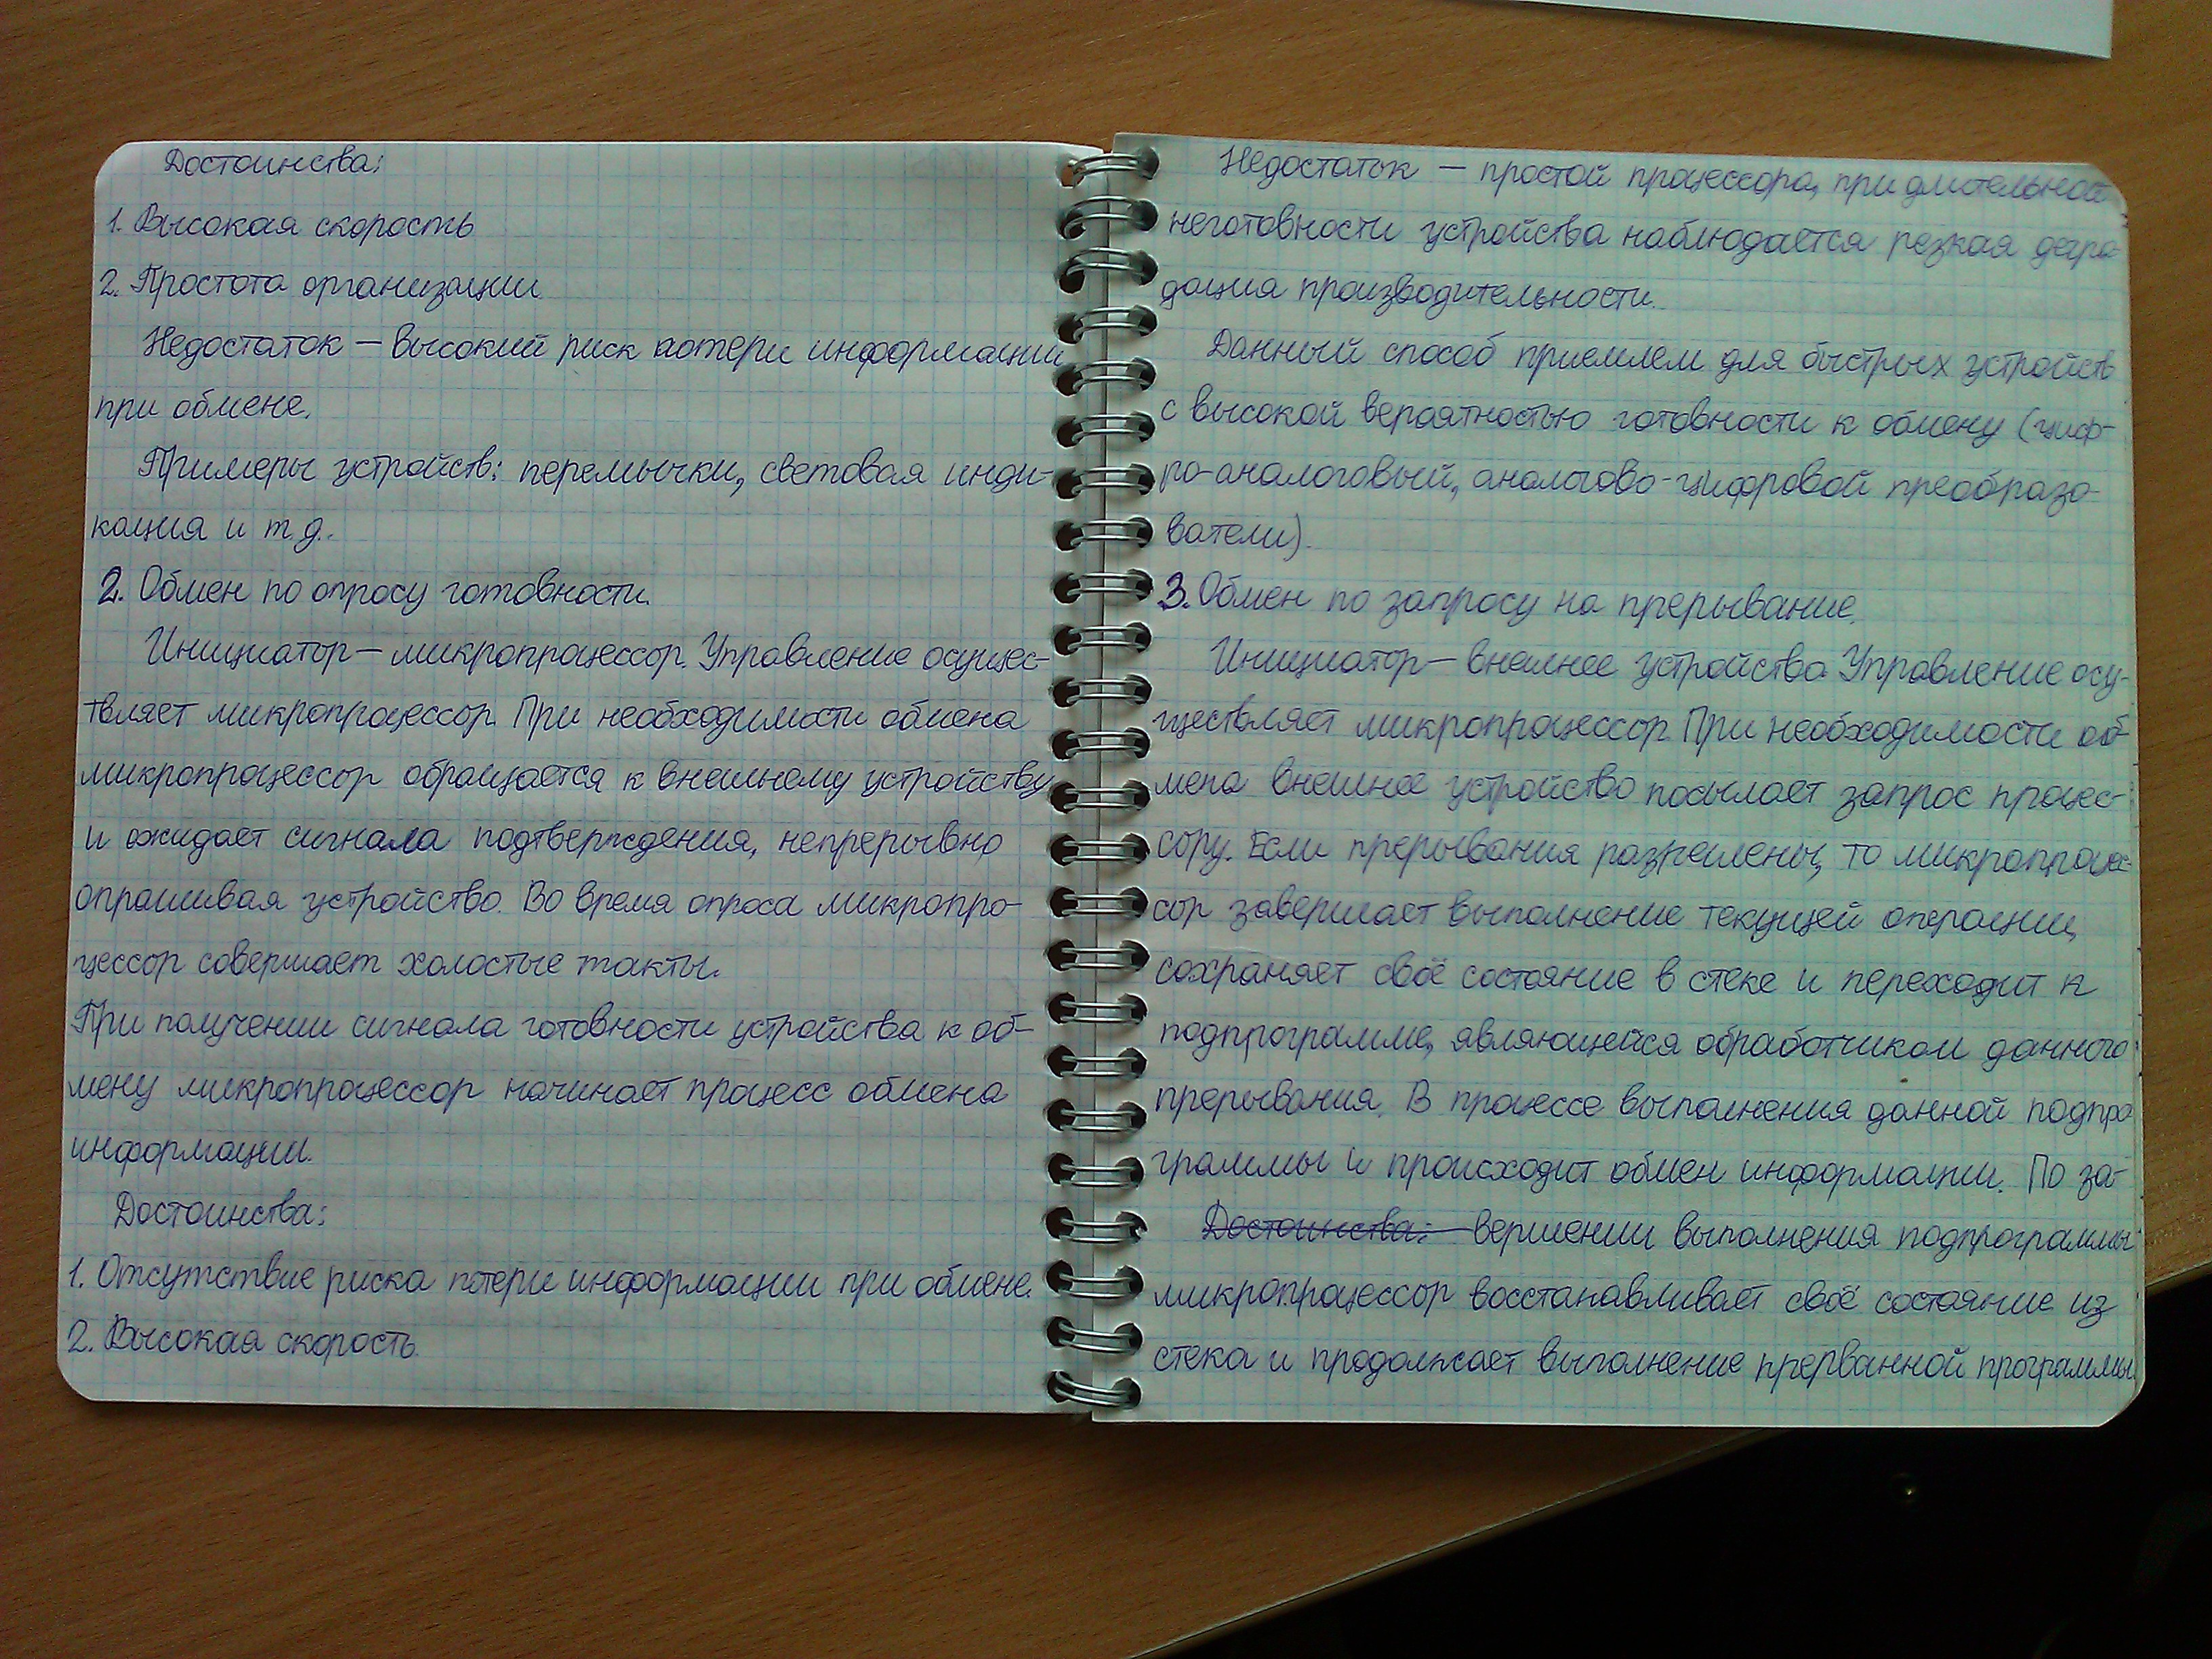 Достоинства:
1. Высокая скорость
2. Простота организации
Недостаток — высокий риск потери информации
при обмене.
Примеры устройств: перемычки, световая инди-
кация и т д..
2. Обмен по опросу готовности.
Инициатор — микропроцессор. Управление осущес-
твляет микропроцессор. При необходимости обмена
микропроцессор обращается к внешнему устройству
и ожидает сигнала подтверждения, непрерывно
опрашивая устройство. Во время опроса микропро-
цессор совершает холостые такты.
При получении сигнала готовности устройства к об-
мену микропроцессор начинает процесс обмена
информации.
Достоинства:
1. Отсутствие риска потери информации при обмене.
2. Высокая скорость.
Недостаток — простой процессора, при длительной
неготовности устройства наблюдается резкая дегра-
дация производительности.
Данный способ приемлем для быстрых устройств
с высокой вероятностью готовности к обмену (циф-
ро-аналоговый, аналогово-цифровой преобразо-
ватели).
3. Обмен по запросу на прерывание.
Инициатор — внешнее устройство. Управление осу-
ществляет микропроцессор. При необходимости об-
мена внешнее устройство посылает запрос процес-
сору. Если прерывания разрешены, то микропроцес-
сор завершает выполнение текущей операции,
сохраняет своё состояние в стеке и переходит к
подпрограмме, являющейся обработчиком данного
прерывания. В процессе выполнения данной подпро-
граммы и происходит обмен информации. По за-
Достоинства: вершении выполнения подпрограммы
микропроцессор восстанавливает своё состояние из
стека и продолжает выполнение прерванной программы.